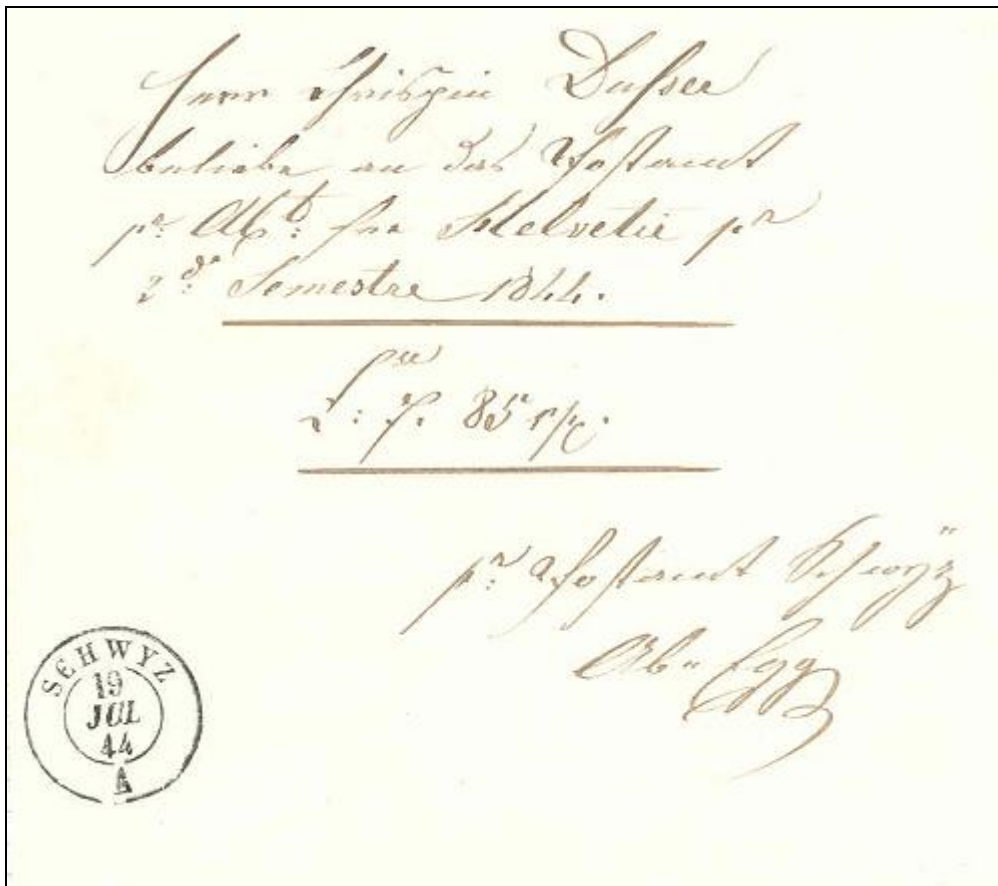 Herr Chrispin Dusser
beliebe an das Postamt
pr. Abt. für Helvetie pr
2do. Semestre 1844.
L: 7. 85 rp.
pr. Postamt Schwÿz
Ab Egg
SCHWYZ
19
JUL
44
A